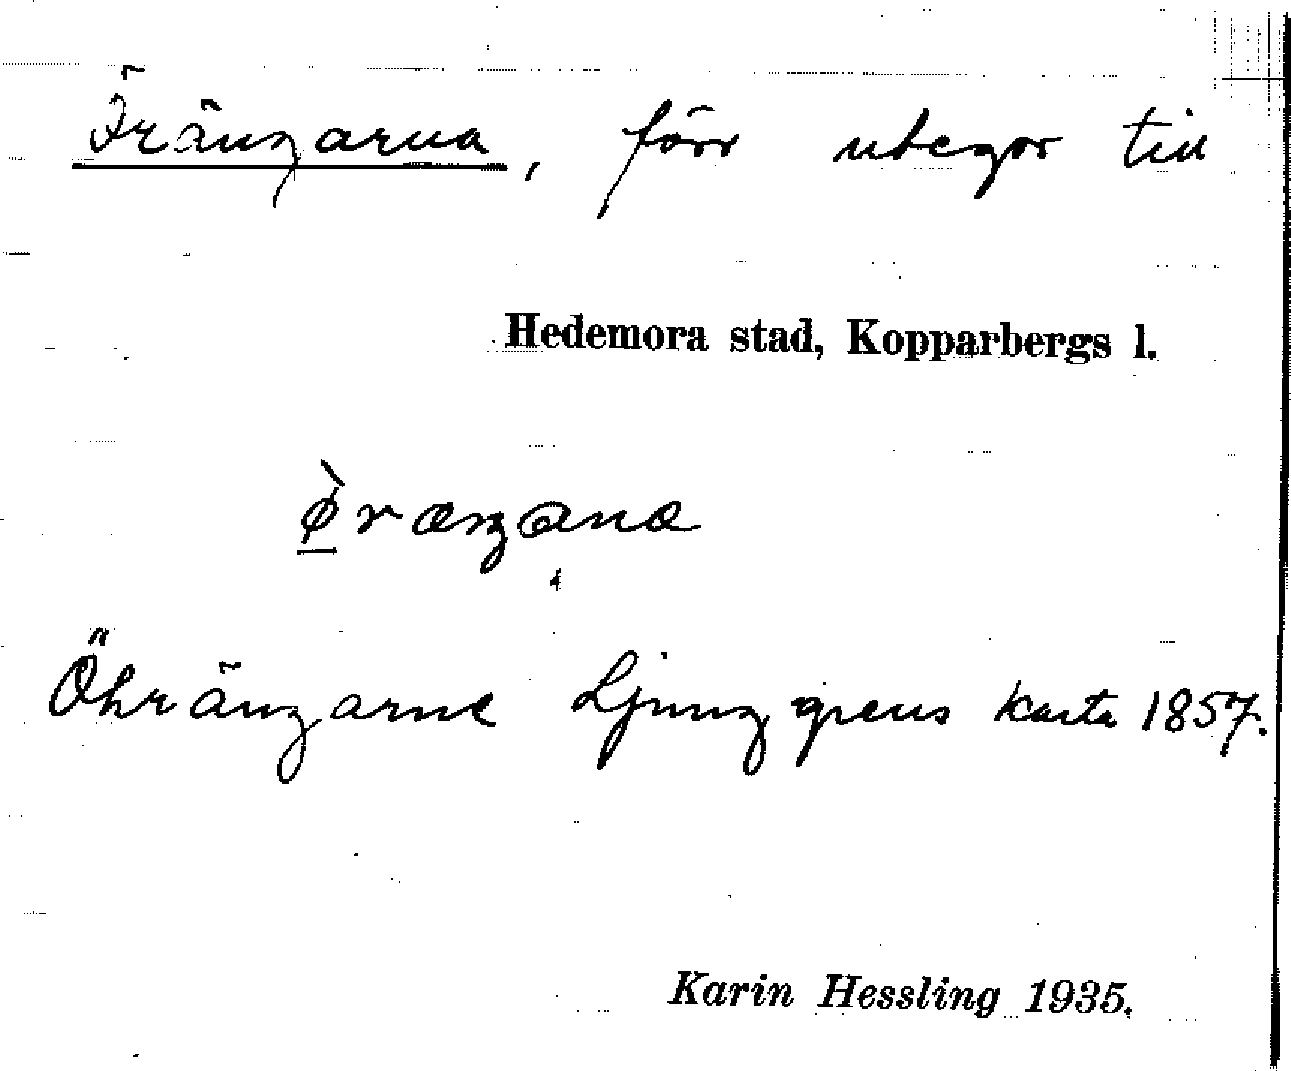 Ïrängarna, förr utegor till
Hedemora stad, Kopparbergs l.
Öhrängarne Ljunggrens karta 1857.
Karin Hessling 1935.